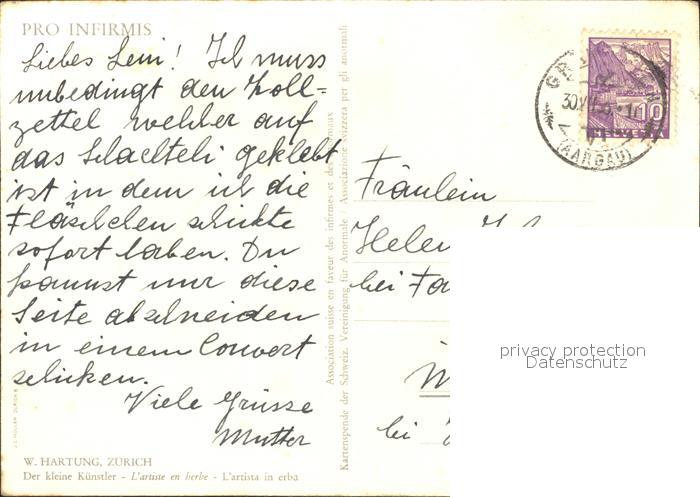 PRO INFIRMIS
Liebes Leni! Ich muss
unbedingt den Zoll-
zettel welcher auf
das Schachteli geklebt
ist in dem ich die
Fläschchen schickte
sofort haben. Du
kannst nur diese
Seite abschneiden
in einem Couvert
schicken.
Viele Grüsse
Mutter
W. HARTUNG, ZÜRICH
Der kleine Künstler - L'artiste en herbe - L'artista in erba
Association suisse en faveur des infirmes et des anormaux
Kartenspende der Schweiz. Vereinigung für Anormale / Associazione svizzera per gli anormali
10
HELVETIA
(AARGAU)
Fräulein
bei
bei
privacy protection
Datenschutz